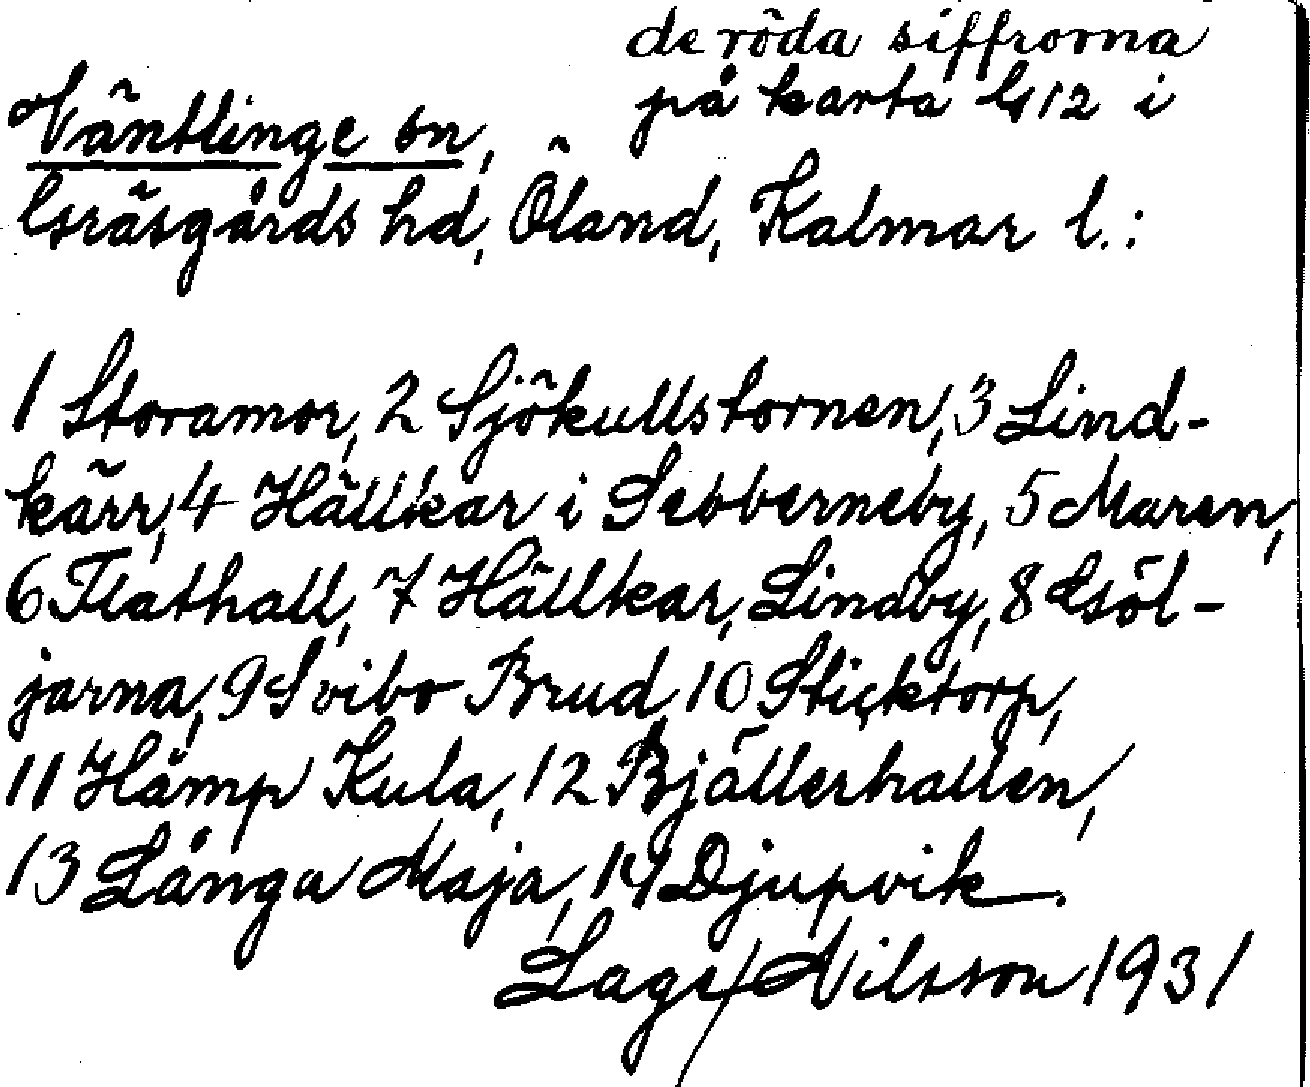 de röda siffrorna
på karta 412 i
Väntlinge sn,
Gräsgårds hd, Öland, Kalmar l.:
1 Storamor, 2 Sjökullstornen, 3 Lind-
kärr, 4 Hällkar i Sebberneby, 5 Maren,
6 Flathall, 7 Hällkar, Lindby, 8
jarna, 9 Svibo Brud 10 Sticktorp,
11 Hamp Kula, 12 Bjällerhallen,
13 Långa Maja, 14 Djupvik.
Lage Nilsson 1931